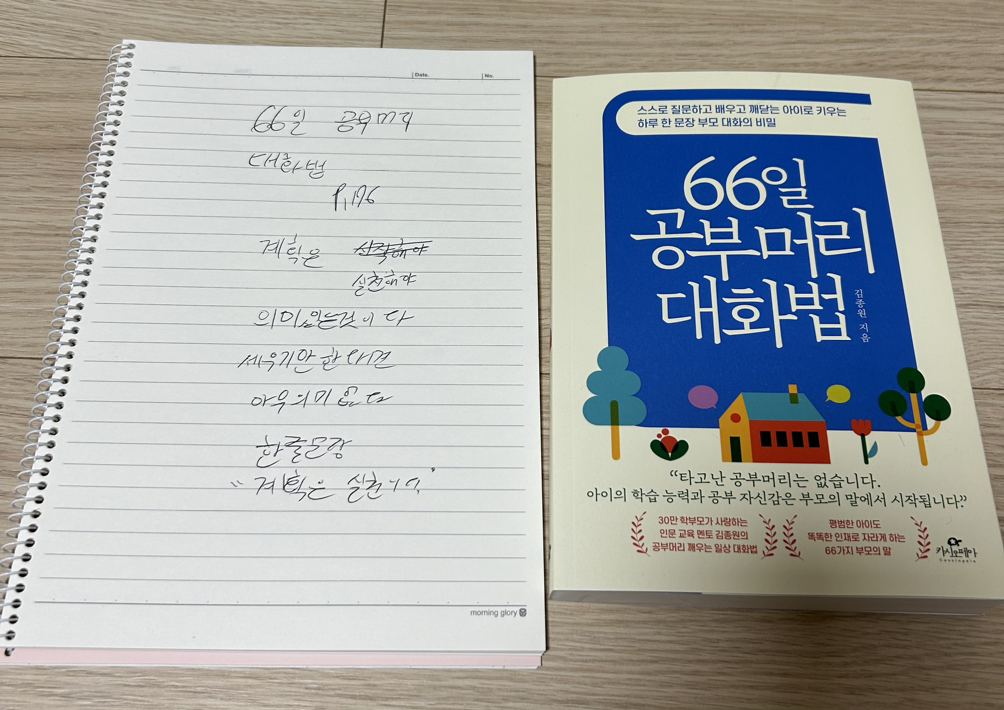 Date.
No.
66일 공부머리
대화법
P.196
계획은 시작해야
실천해야
의미있는것이다
세우기만 한다면
아무의미 없다
한줄문장
"계획은 실천이다."
morning glory
스스로 질문하고 배우고 깨닫는 아이로 키우는
하루 한 문장 부모 대화의 비밀
66일
공부머리
대화법
김종원 지음
“타고난 공부머리는 없습니다.
아이의 학습 능력과 공부 자신감은 부모의 말에서 시작됩니다.”
30만 학부모가 사랑하는
인문 교육 멘토 김종원의
공부머리 깨우는 일상 대화법
평범한 아이도
똑똑한 인재로 자라게 하는
66가지 부모의 말
카시오페아
Cassiopeia